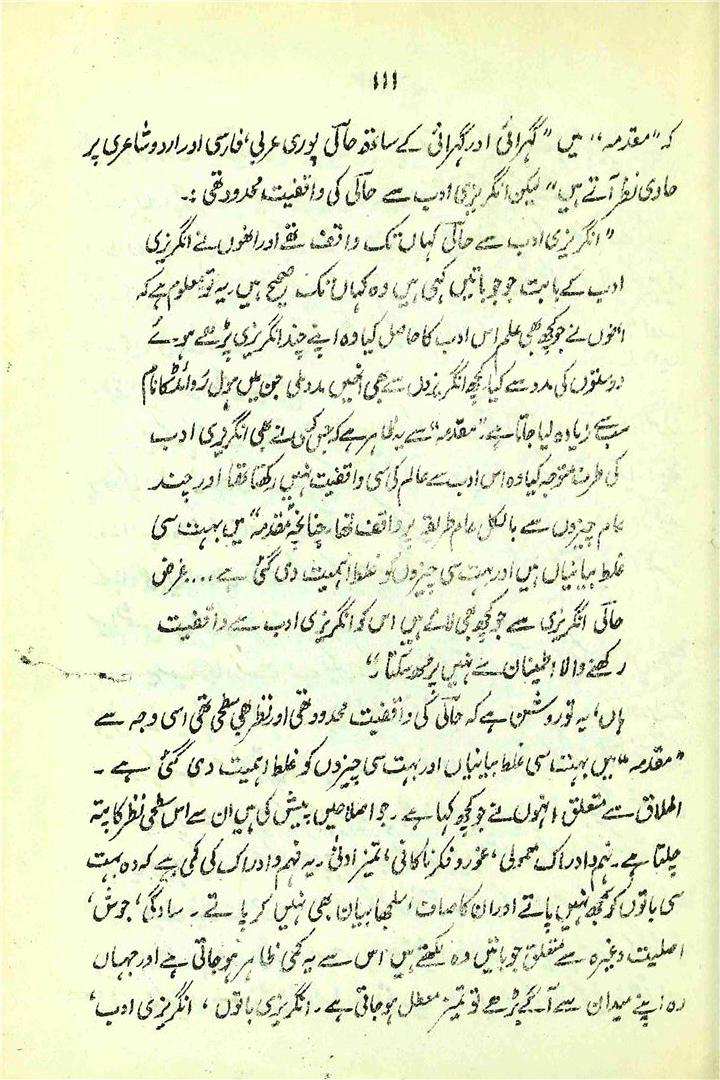 ۱۱۱
کہ "مقدمہ" میں "گہرائی اور گہرائی کے ساتھ حالی پوری عربی، فارسی اور اردو شاعری پر
حاوی نظر آتے ہیں" لیکن انگریزی ادب سے حالی کی واقفیت محدود تھی :۔
"انگریزی ادب سے حالی کہاں تک واقف تھے اور انھوں نے انگریزی
ادب کے بابت جو جو باتیں کہی ہیں وہ کہاں تک صحیح ہیں۔ یہ تو معلوم ہے کہ
انھوں نے جو کچھ بھی علم اس ادب کا حاصل کیا وہ اپنے چند انگریزی پڑھے ہوئے
دوستوں کی مدد سے کیا۔ کچھ انگریزوں سے بھی انھیں مدد ملی جن میں ہول رَوائڈ کا نام
سب سے زیادہ لیا جاتا ہے۔ "مقدمہ" سے یہ ظاہر ہے کہ جس کسی نے بھی انگریزی ادب
کی طرف متوجہ کیا وہ اس ادب سے عالم کی سی واقفیت نہیں رکھتا تھا اور چند
عام چیزوں سے بالکل عام طریقہ پر واقف تھا۔ چنانچہ "مقدمہ" میں بہت سی
غلط بیانیاں ہیں اور بہت سی چیزوں کو غلط اہمیت دی گئی ہے .... غرض
حالی انگریزی سے جو کچھ بھی لائے ہیں اس کو انگریزی ادب سے واقفیت
رکھنے والا اطمینان سے نہیں پڑھ سکتا۔"
ہاں، یہ تو روشن ہے کہ حالی کی واقفیت محدود تھی اور نظر بھی سطحی تھی اسی وجہ سے
"مقدمہ" میں بہت سی غلط بیانیاں اور بہت سی چیزوں کو غلط اہمیت دی گئی ہے ۔
اطلاق سے متعلق انہوں نے جو کچھ کہا ہے ۔ جو اصلاحیں پیش کی ہیں ان سے اس سطحی نظر کا پتہ
چلتا ہے۔ فہم و ادراک معمولی، غور و فکر ناکافی، تمیز ادنیٰ۔ یہ فہم و ادراک کی کمی ہے کہ وہ بہت
سی باتوں کو سمجھ نہیں پاتے اور ان کا صاف، سلجھا بیان بھی نہیں کر پاتے ۔ سادگی، جوش،
اصلیت وغیرہ سے متعلق جو باتیں وہ لکھتے ہیں اس سے یہ کمی ظاہر ہو جاتی ہے اور جہاں
وہ اپنے میدان سے آگے بڑھے تو تمیز معطل ہو جاتی ہے۔ انگریزی باتوں، انگریزی ادب،